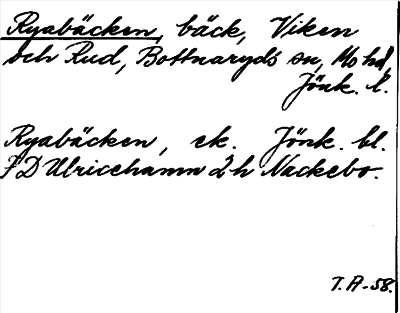 Ryabäcken, bäck, Viken
och Rud, Bottnaryds sn, Mo hd,
Jönk. l.
Ryabäcken, ek. Jönk. bl.
7D Ulricehamn 2h Nackebo.
T.A-58.